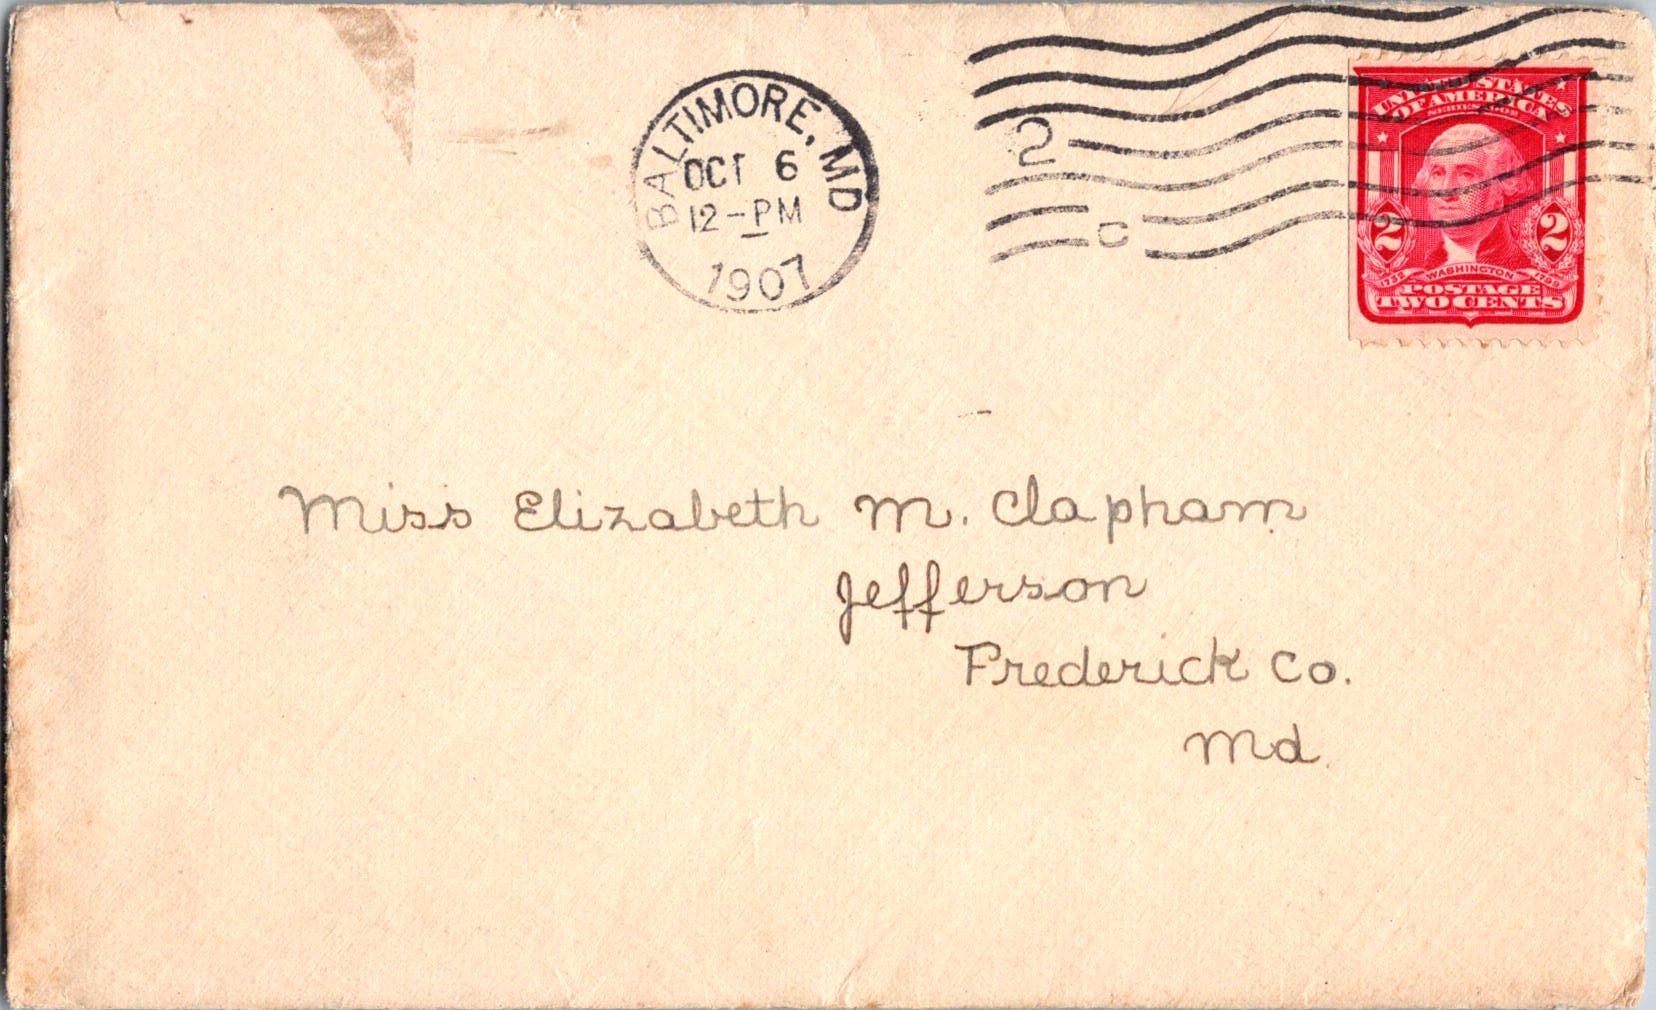 BALTIMORE, MD
OCT 6
12-PM
1907
2
C
UNITED STATES
OF AMERICA
SERIES 1902
2 2
1732 WASHINGTON 1799
POSTAGE
TWO CENTS
Miss Elizabeth M. Clapham
Jefferson
Frederick Co.
Md.